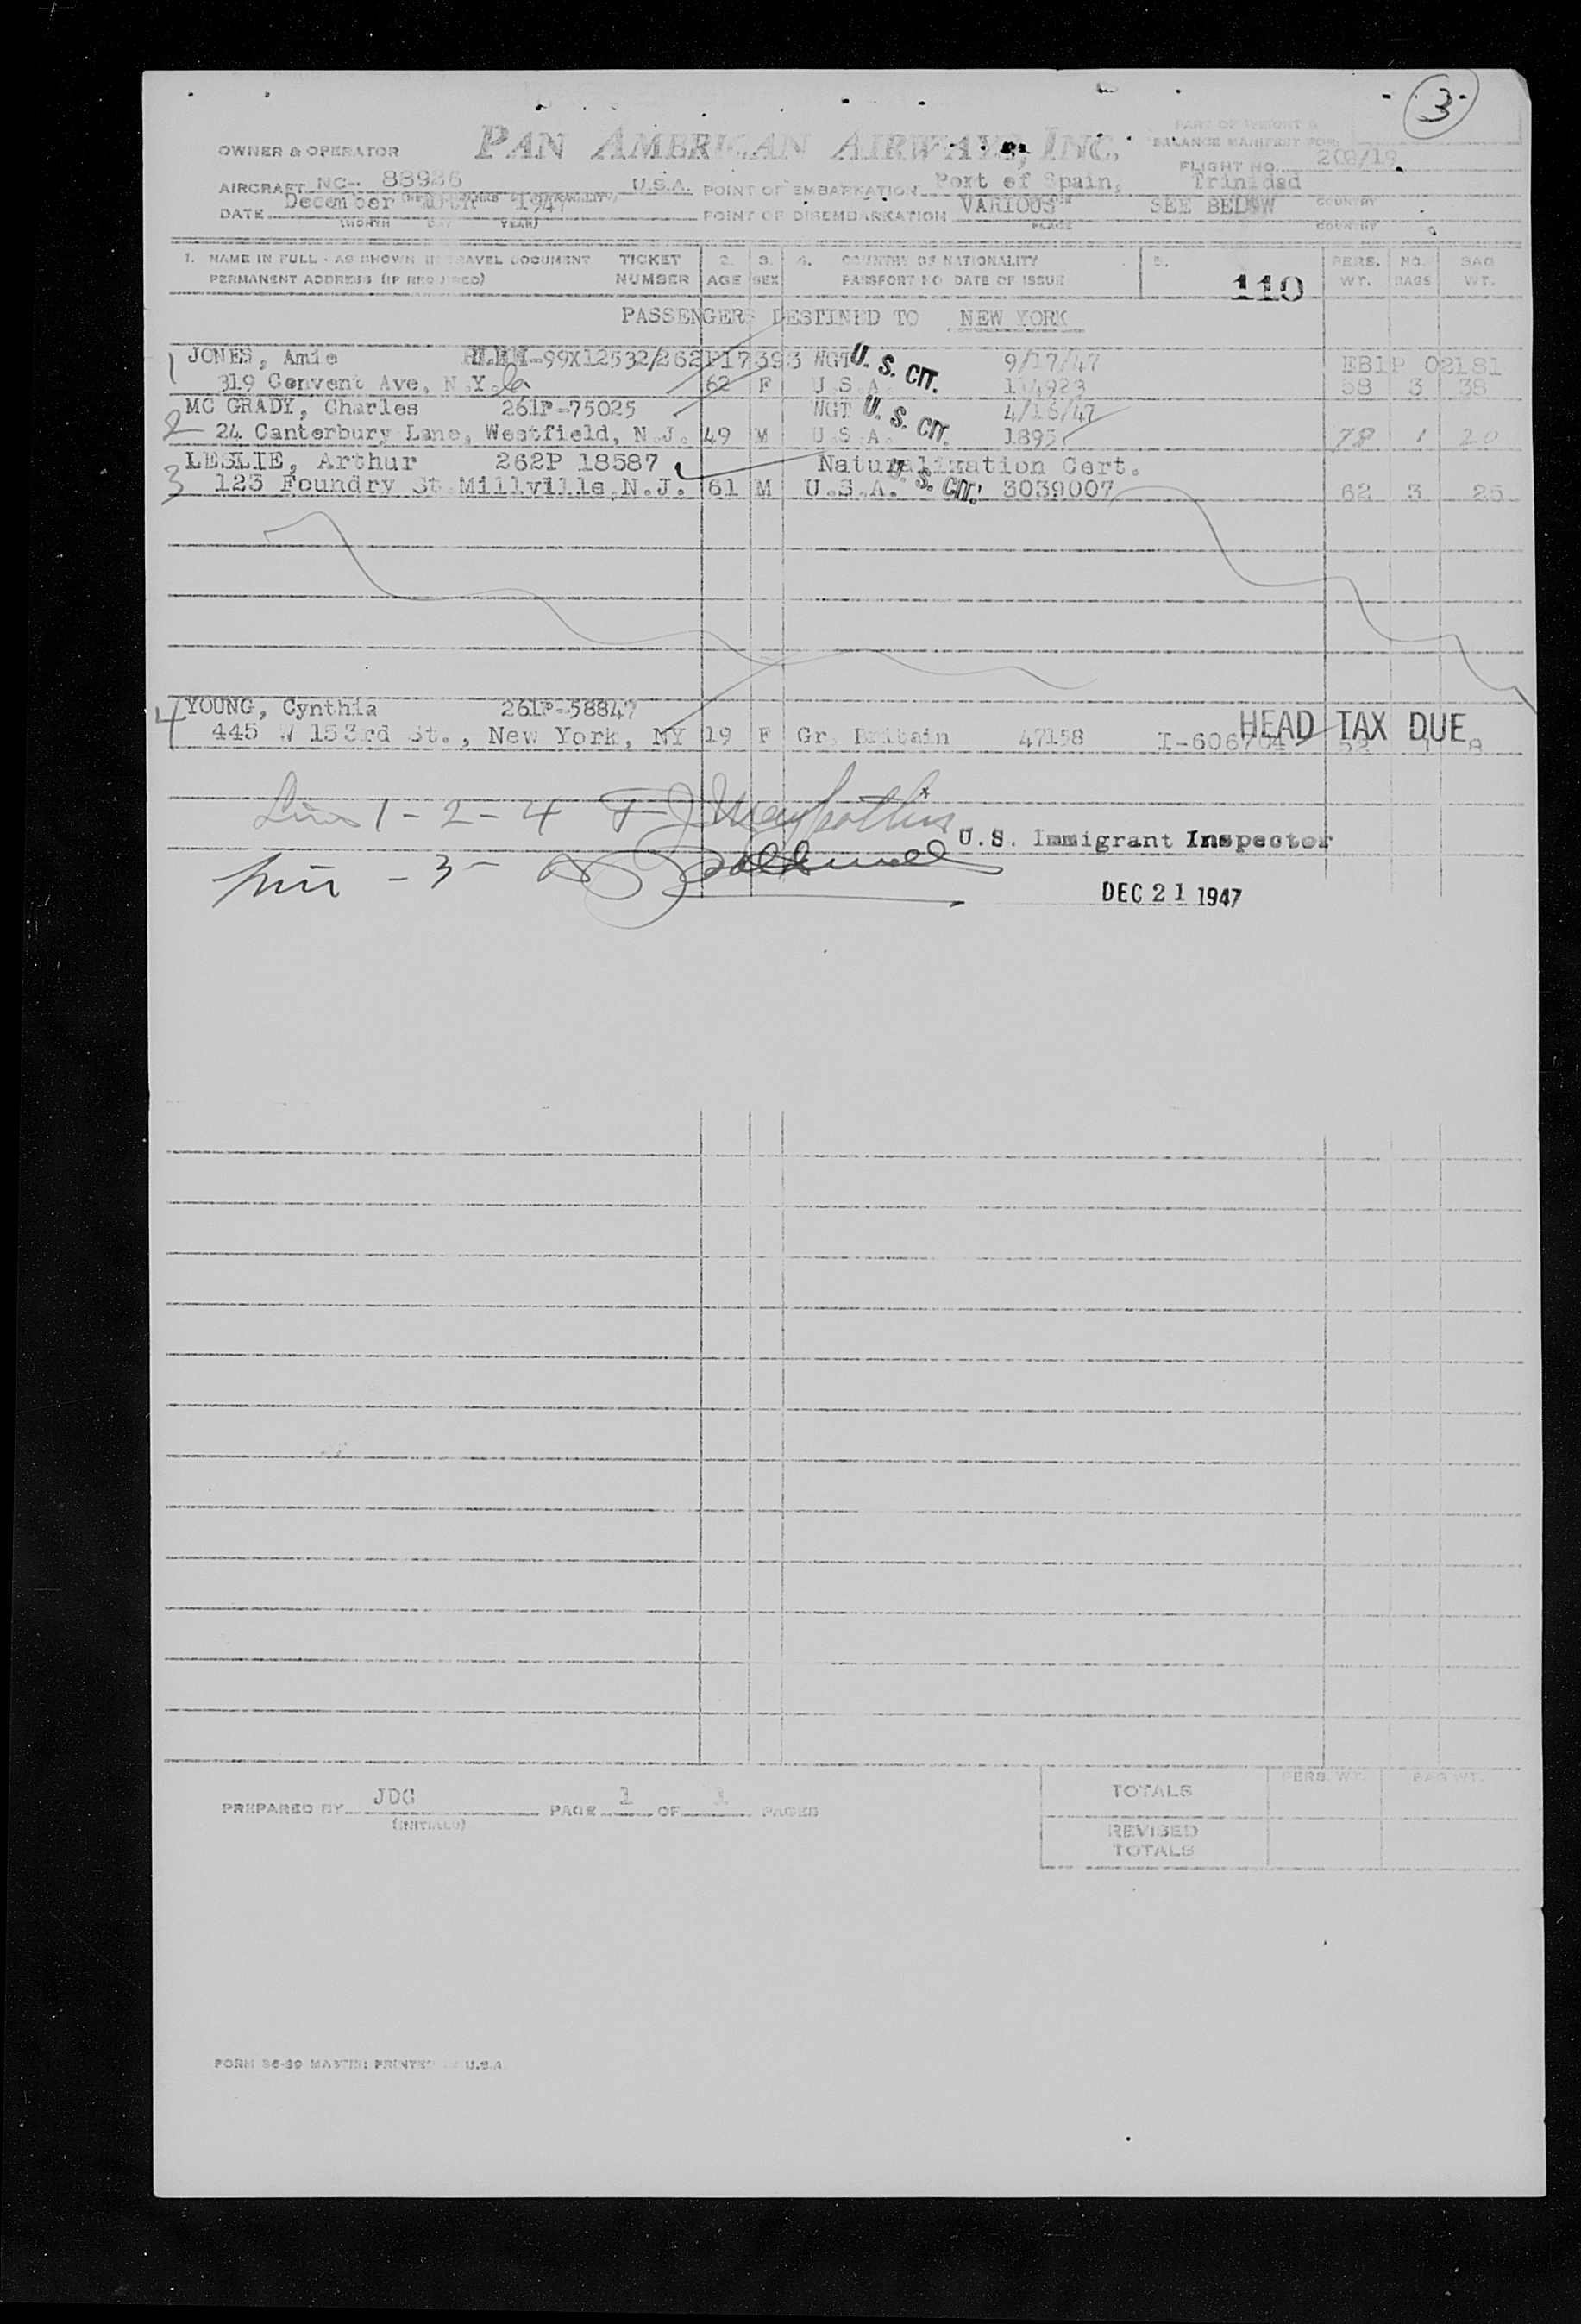 3
PART OF WEIGHT &
BALANCE MANIFEST FOR
OWNER & OPERATOR PAN AMERICAN AIRWAYS, INC.
FLIGHT NO. 208/19
AIRCRAFT NC- 88926 U.S.A. POINT OF EMBARKATION Port of Spain, Trinidad
DATE December 1947 POINT OF DISEMBARKATION VARIOUS SEE BELOW
(MONTH DAY YEAR) PLACE COUNTRY
1. NAME IN FULL - AS SHOWN IN TRAVEL DOCUMENT TICKET 2. 3. 4. COUNTRY OF NATIONALITY 5. PERS. NO. BAG
PERMANENT ADDRESS (IF REQUIRED) NUMBER AGE SEX PASSPORT NO DATE OF ISSUE 110 WT. BAGS WT.
PASSENGERS DESTINED TO NEW YORK
1 JONES, Amie 99X12532/262P17393 WGT U. S. CIT. 9/17/47 EB1P 02181
319 Convent Ave, N.Y. 62 F U.S.A. 114923 58 3 38
2 MC GRADY, Charles 261P-75025 WGT U. S. CIT. 4/16/47
24 Canterbury Lane, Westfield, N.J. 49 M U.S.A. 1895 78 1 20
3 LESLIE, Arthur 262P 18587 Naturalization Cert.
123 Foundry St Millville, N.J. 61 M U.S.A. U. S. CIT. 3039007 62 3 25
4 YOUNG, Cynthia 261P-58847 HEAD TAX DUE
445 W 153rd St., New York, NY 19 F Gr. Britain 47158 I-606704 52 1 8
Lines 1-2-4
U.S. Immigrant Inspector
-3-
DEC 21 1947
PREPARED BY JDG PAGE 1 OF 1 PAGES
(INITIALS)
PERS. WT. BAG WT.
TOTALS
REVISED
TOTALS
FORM 36-39 MASTER: PRINTED IN U.S.A